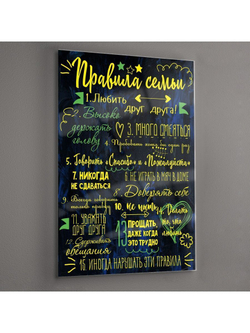 Правила семьи
1. Любить
друг друга!
2. Высоко
держать
голову
3. много смеяться
5. Говорить «Спасибо» и «Пожалуйста»
7. никогда
не сдаваться
6 не играть в мяч в доме
8. Доверять себе
9. Всегда говорить
только правду
10. не
11. уважать
друг друга
12. Сдерживать
обещания
13 Прощать,
даже когда
это трудно
14.
и иногда нарушать эти правила